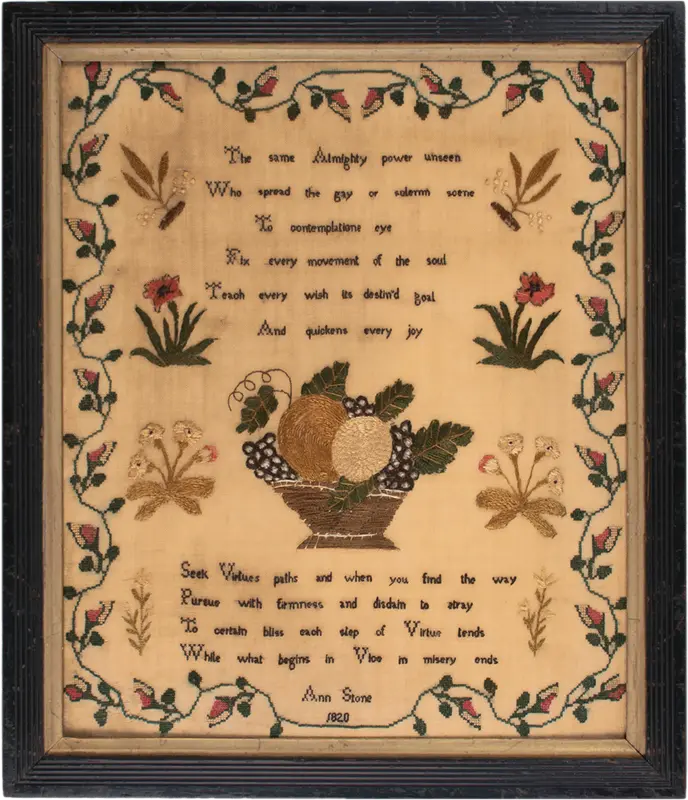 The same Almighty power unseen
Who spread the gay or solemn scene
To contemplations eye
Fix every movement of the soul
Teach every wish its destin'd goal
And quickens every joy
Seek Virtues paths and when you find the way
Pursue with firmness and disdain to stray
To certain bliss each step of Virtue tends
While what begins in Vice in misery ends
Ann Stone
1820